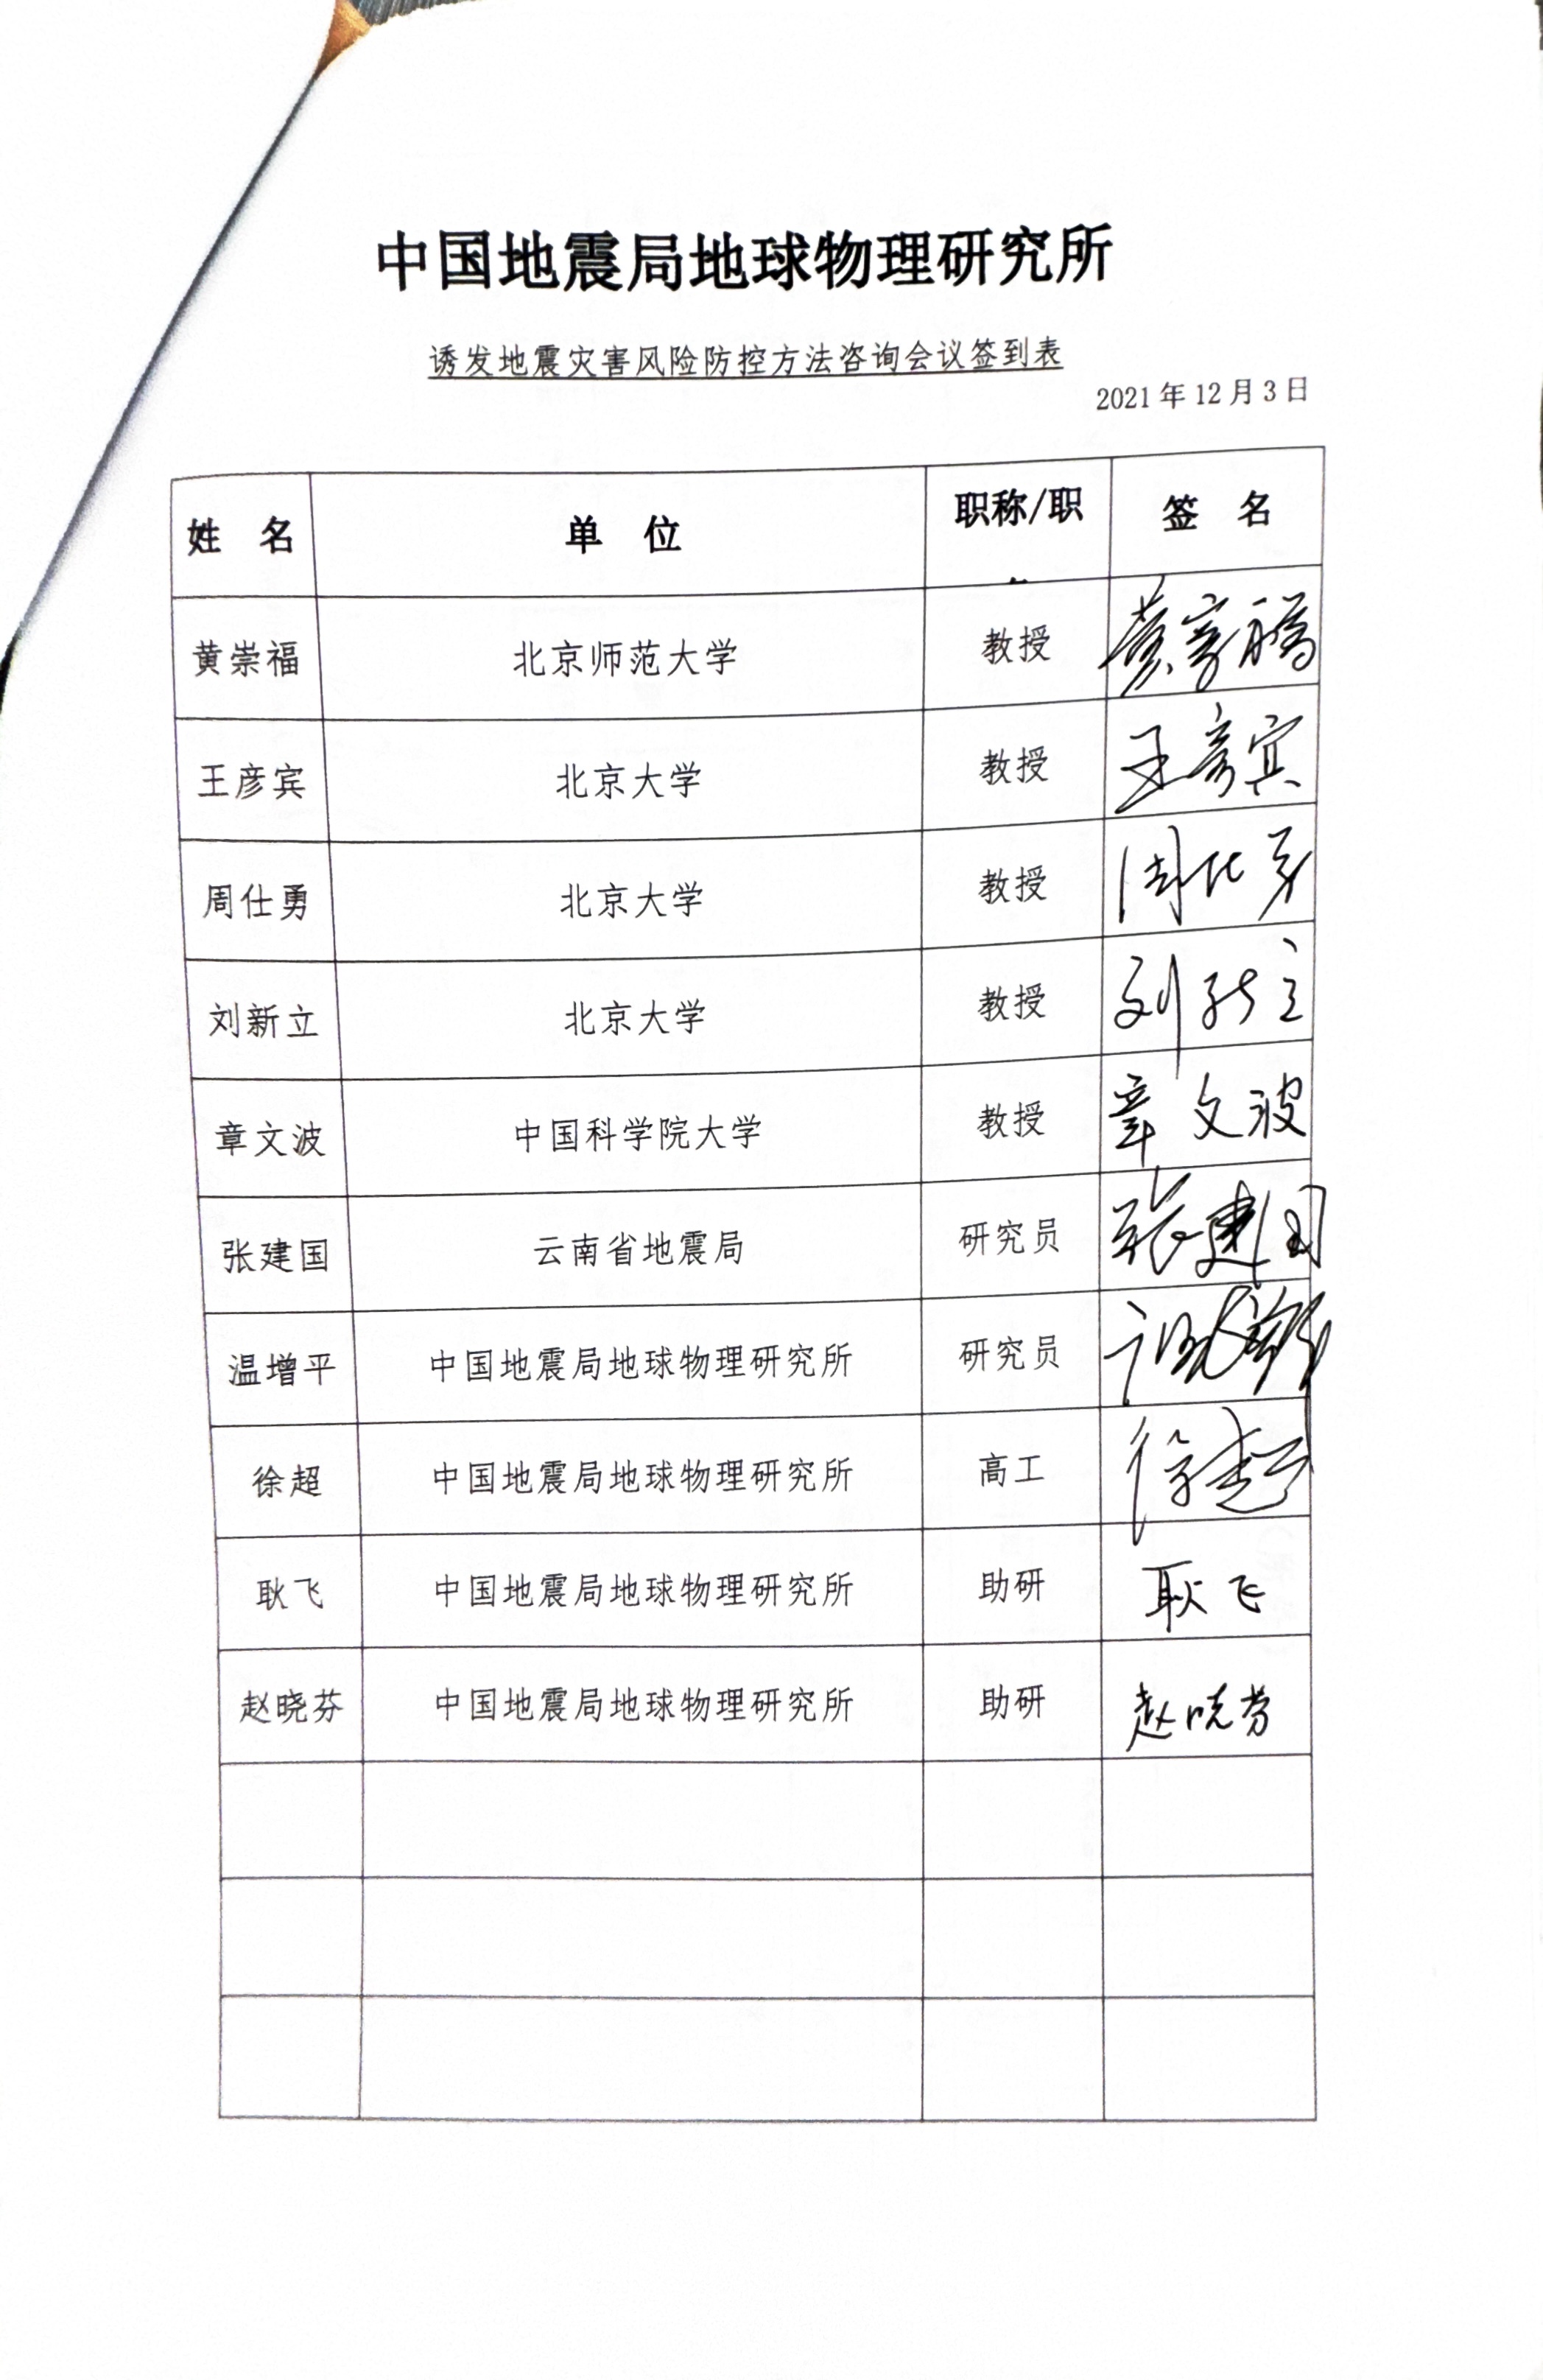 中国地震局地球物理研究所
诱发地震灾害风险防控方法咨询会议签到表
2021年12月3日
姓 名 单 位 职称/职 签 名
黄崇福 北京师范大学 教授 黄崇福
王彦宾 北京大学 教授 王彦宾
周仕勇 北京大学 教授 周仕勇
刘新立 北京大学 教授 刘新立
章文波 中国科学院大学 教授 章文波
张建国 云南省地震局 研究员 张建国
温增平 中国地震局地球物理研究所 研究员 温增平
徐超 中国地震局地球物理研究所 高工 徐超
耿飞 中国地震局地球物理研究所 助研 耿飞
赵晓芬 中国地震局地球物理研究所 助研 赵晓芬